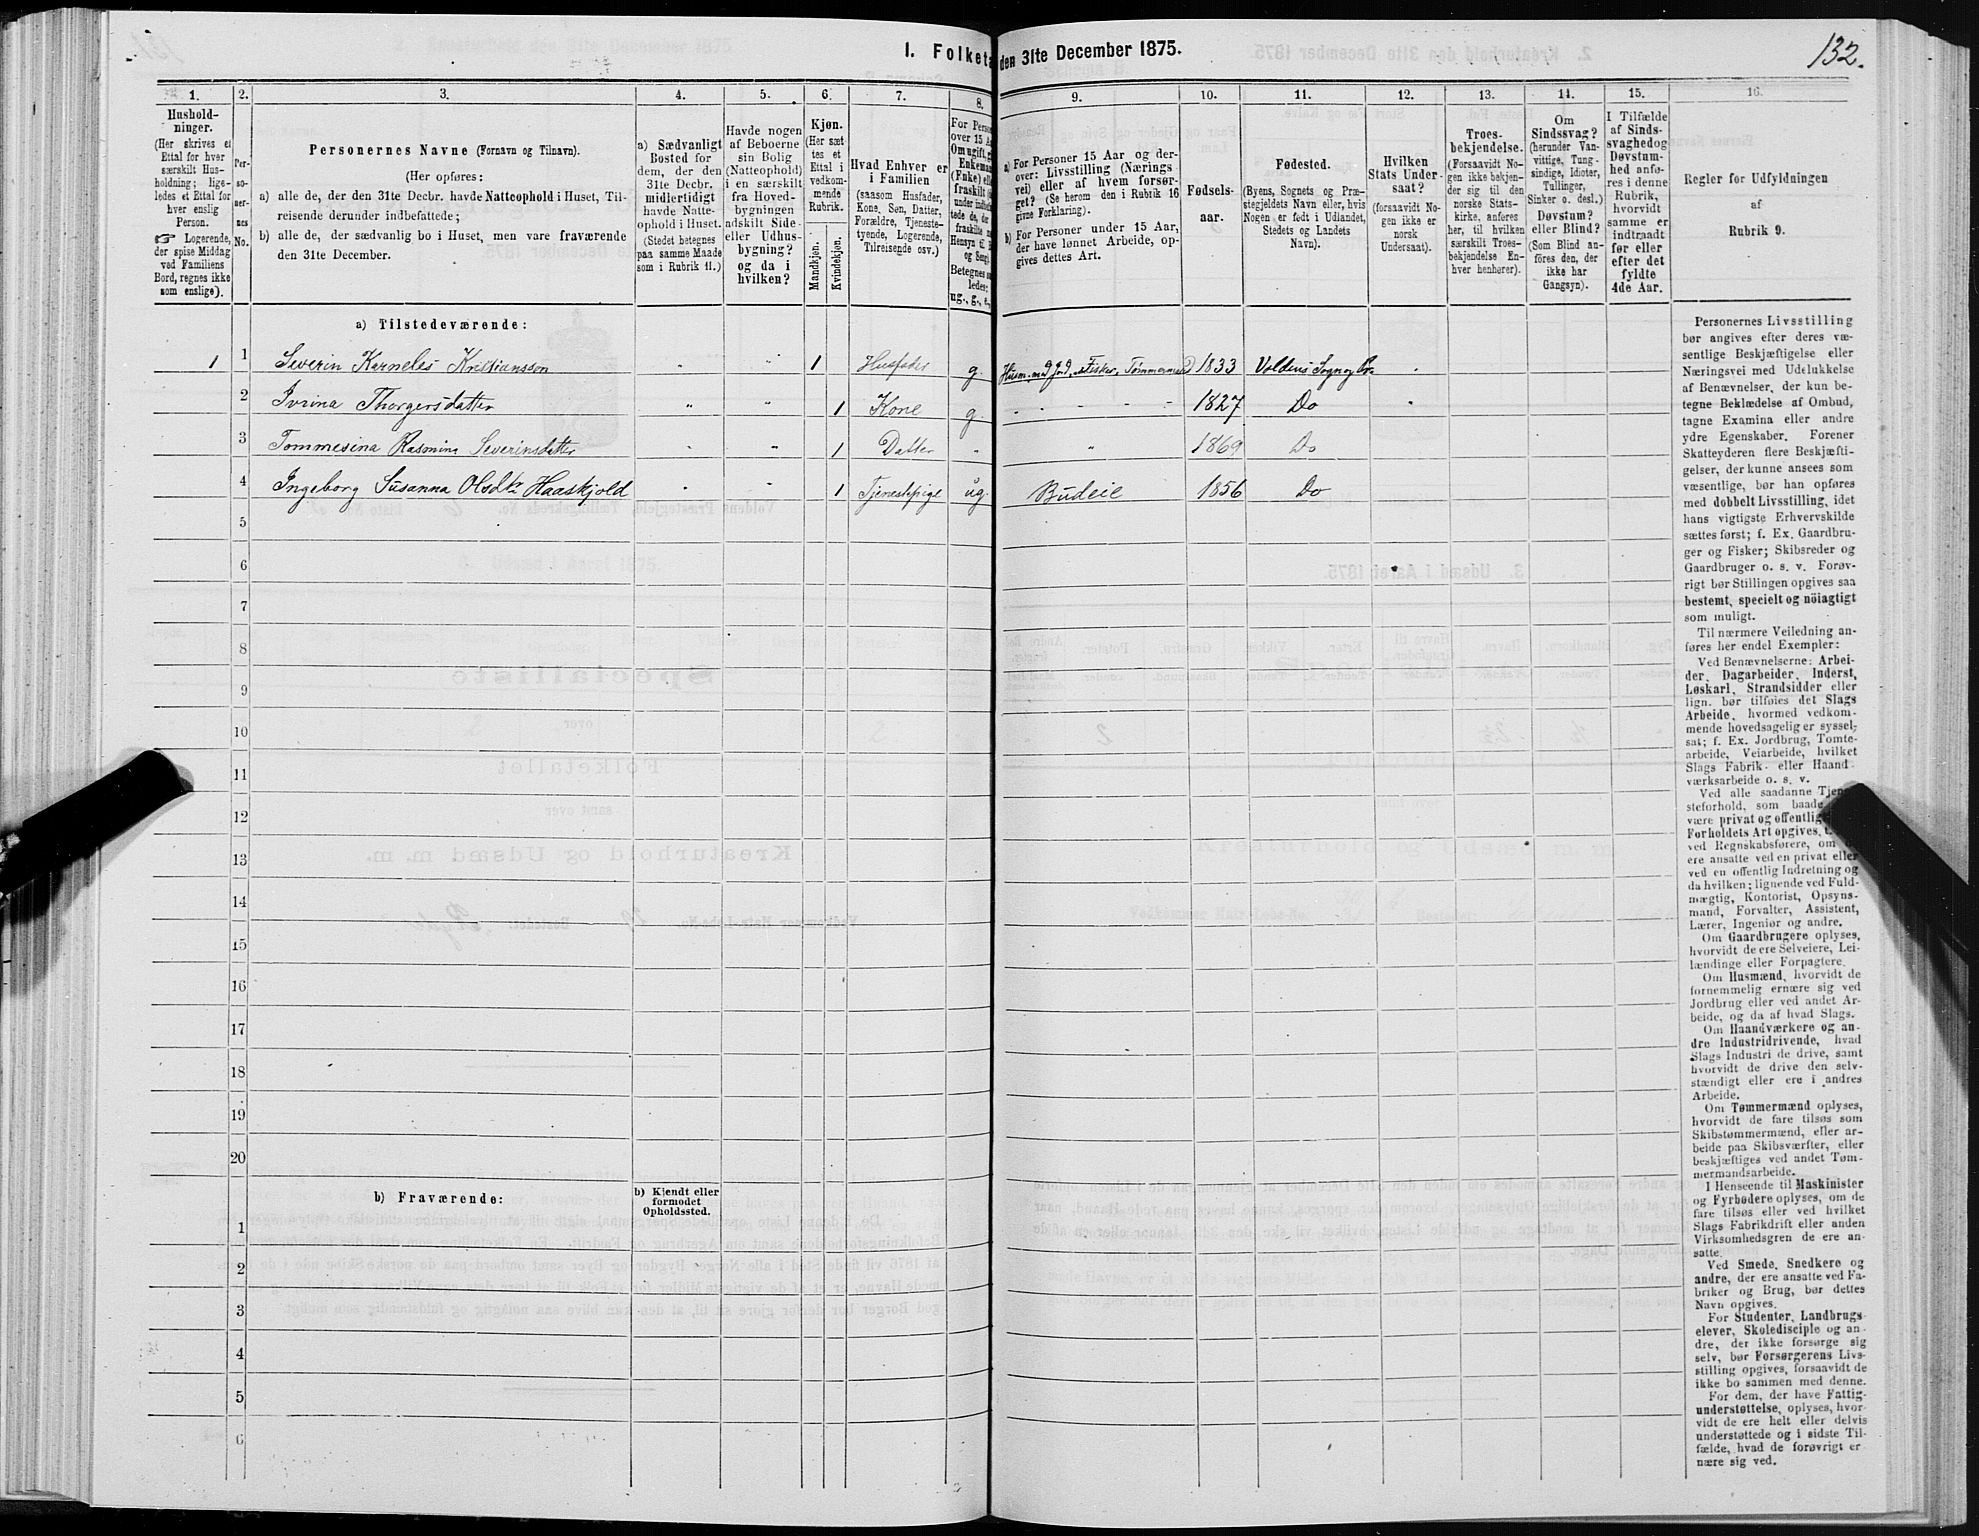 132.
I. Folketa
den 31te December 1875.
1.
2.
3.
4.
5.
6.
7.
8.
9.
10.
11.
12.
13.
14.
15.
16.
Hushold-
ninger.
(Her skrives et
Ettal for hver
særskilt Hus-
holdning; lige-
ledes et Ettal for
hver enslig
Person.
☞ Logerende,
der spise Middag
ved Familiens
Bord, regnes ikke
som enslige).
Per-
so-
ner-
nes
No.
Personernes Navne (Fornavn og Tilnavn).
(Her opføres:
a) alle de, der den 31te Decbr. havde Natteophold i Huset, Til-
reisende derunder indbefattede;
b) alle de, der sædvanlig bo i Huset, men vare fraværende
den 31te December.
a) Sædvanligt
Bosted for
dem, der den
31te Decbr.
midlertidigt
havde Natte-
ophold i Huset.
(Stedet betegnes
paa samme Maade
som i Rubrik 11.)
Havde nogen
af Beboerne
sin Bolig
(Natteophold)
i en særskilt
fra Hoved-
bygningen
adskilt Side-
eller Udhus-
bygning?
og da i
hvilken?
Kjøn.
(Her sæt-
tes et
Ettal i
vedkom-
mende
Rubrik.
Mandkjøn.
Kvindekjøn.
Hvad Enhver er
i Familien
(saasom Husfader,
Kone, Søn, Datter,
Forældre, Tjeneste-
tyende, Logerende,
Tilreisende osv.)
For Person
over 15 A
Om ugift, g
Enkeman
(Fnke) ell
fraskilt
under indb
tede de, d
fraskilte
Hensyn t
og Seng
Betegnes s
ledes:
ug., g., e.,
a) For Personer 15 Aar og der-
over: Livsstilling (Nærings-
vei) eller af hvem forsør-
get? (Se herom den i Rubrik 16
givne Forklaring).
b) For Personer under 15 Aar,
der have lønnet Arbeide, op-
gives dettes Art.
Fødsels-
aar.
Fødested.
(Byens, Sognets og Præ-
stegjeldets Navn eller, hvis
Nogen er født i Udlandet,
Stedets og Landets
Navn).
Hvilken
Stats Under-
saat?
(forsaavidt No-
gen ikke er
norsk
Undersaat).
Troes-
bekjendelse.
(Forsaavidt No-
gen ikke bekjen-
der sig til den
norske Stats-
kirke, anføres
her, til hvilken
særskilt Troes-
bekjendelse En-
hver henhører).
Om
Sindssvag?
(herunder Van-
vittige, Tung-
sindige, Idioter,
Tullinger,
Sinker o. desl.)
Døvstum?
eller Blind?
(Som Blind an-
føres den, der
ikke har
Gangsyn).
I Tilfælde
af Sinds-
svaghed og
Døvstum-
hed anfø-
res i denne
Rubrik,
hvorvidt
samme er
indtraadt
før eller
efter det
fyldte
4de Aar.
Regler for Udfyldningen
af
Rubrik 9.
a) Tilstedeværende:
1 1 Severin Karneles Kristiansson " " 1 Husfader g. Husm. med Jord, Fisker, Tømmermand 1833 Voldens Sogn og
2 Ivrina Thorgersdatter " " 1 Kone g. " " " " 1827 Do "
3 Tommesina Rasmina Severinsdatter " " 1 Datter " " 1869 Do
4 Ingeborg Susanna Olsdtr Haaskjold " " 1 Tjenestepige ug. Budeie 1856 Do
5
6
7
8
9
10
11
12
13
14
15
16
17
18
19
20
b) Fraværende:
b) Kjendt eller
formodet
Opholdssted.
1
2
3
4
5
6
Personernes Livsstilling
bør angives efter deres væ-
sentlige Beskjæftigelse eller
Næringsvei med Udelukkelse
af Benævnelser, der kun be-
tegne Beklædelse af Ombud,
tagne Examina eller andre
ydre Egenskaber. Forener
Skatteyderen flere Beskjæfti-
gelser, der kunne ansees som
væsentlige, bør han opføres
med dobbelt Livsstilling, idet
hans vigtigste Erhvervskilde
sættes først; f. Ex. Gaardbru-
ger og Fisker; Skibsreder og
Gaardbruger o. s. v. Forøv-
rigt bør Stillingen opgives saa
bestemt, specielt og nöiagtigt
som muligt.
Til nærmere Veiledning an-
føres her endel Exempler:
Ved Benævnelserne: Arbei-
der, Dagarbeider, Inderst,
Løskarl, Strandsidder eller
lign. bør tilføies det Slags
Arbeide, hvormed vedkom-
mende hovedsagelig er syssel-
sat; f. Ex. Jordbrug, Tomte-
arbeide, Veiarbeide, hvilket
Slags Fabrik- eller Haand-
værksarbeide o. s. v.
Ved alle saadanne Tjen
steforhold, som baade
være privat og offentlig
Forholdets Art opgives,
ved Regnskabsførere, om
ere ansatte ved en privat eller
ved en offentlig Indretning og
da hvilken; lignende ved Fuld-
mægtig, Kontorist, Opsyns-
mand, Forvalter, Assistent,
Lærer, Ingeniør og andre.
Om Gaardbrugere oplyses,
hvorvidt de ere Selveiere, Lei-
lændinge eller Forpagtere.
Om Husmænd, hvorvidt de
fornemmelig ernære sig ved
Jordbrug eller ved andet Ar-
beide, og da af hvad Slags.
Om Haandværkere og an-
dre Industridrivende, hvad
Slags Industri de drive, samt
hvorvidt de drive den selv-
stændigt eller ere i andres
Arbeide.
Om Tømmermænd oplyses,
hvorvidt de fare tilsøs som
Skibstømmermænd, eller ar-
beide paa Skibsværfter, eller
beskjæftiges ved andet Tøm-
mermandsarbeide.
I Henseende til Maskinister
og Fyrbødere oplyses, om de
fare tilsøs eller ved hvilket
Slags Fabrikdrift eller anden
Virksomhedsgren de ere an-
satte.
Ved Smede, Snedkere og
andre, der ere ansatte ved Fa-
briker og Brug, bør dettes
Navn opgives.
For Studenter, Landbrugs-
elever, Skoledisciple og an-
dre, der ikke forsørge sig
selv, bør Forsørgerens Livs-
stilling opgives, forsaavidt de
ikke bo sammen med denne.
For dem, der have Fattig-
understøttelse, oplyses, hvor-
vidt de ere helt eller delvis
understøttede og i sidste Til-
fælde, hvad de forøvrigt er-
nære sig ved.